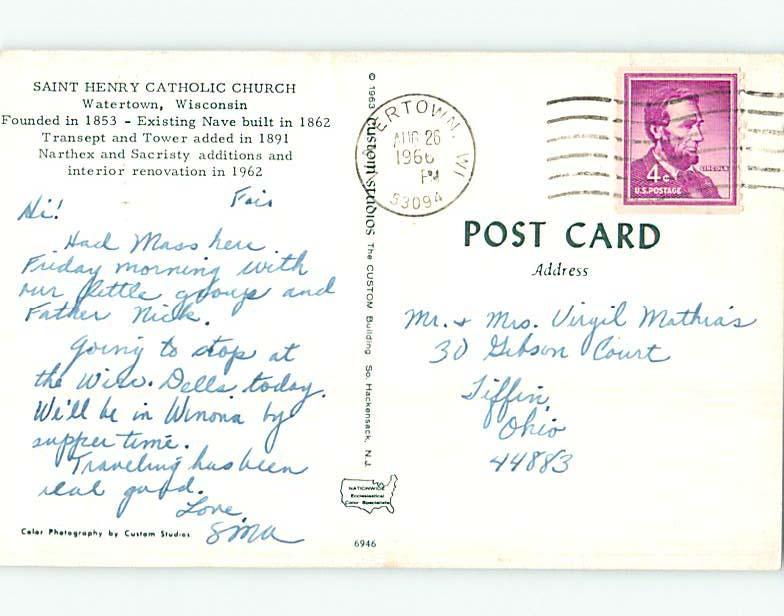 SAINT HENRY CATHOLIC CHURCH
Watertown, Wisconsin
Founded in 1853 - Existing Nave built in 1862
Transept and Tower added in 1891
Narthex and Sacristy additions and
interior renovation in 1962
Hi!
Had Mass here
Friday morning with
our little group and
Father Nick.
Going to stop at
the Wisc. Dells today.
We'll be in Winona by
supper time.
Traveling has been
real good.
Love,
Color Photography by Custom Studios
© 1963 custom studios The CUSTOM Building So. Hackensack, N.J.
NATIONWIDE
Ecclesiastical
Color Specialists
6946
ERTOWN, WI
AUG 26
1966
PM
53094
LINCOLN
4¢
U.S. POSTAGE
POST CARD
Address
Mr. + Mrs. Virgil Mathias
30 Gibson Court
Tiffin,
Ohio
44883